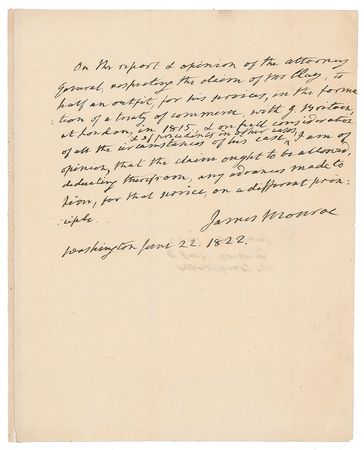 On the report & opinion of the attorney
General, respecting the claim of Mr Clay, to
half an outfit, for his services, in the forma
tion of a treaty of commerce, with G Britain,
at London, in 1815, & on full consideration
& of precedents in other cases
of all the circumstances of his case, I am of
opinion, that the claim ought to be allowed,
deducting therefrom, any advances made to
him, for that service, on a different prin-
ciple.
James Monroe
Washington June 22. 1822.